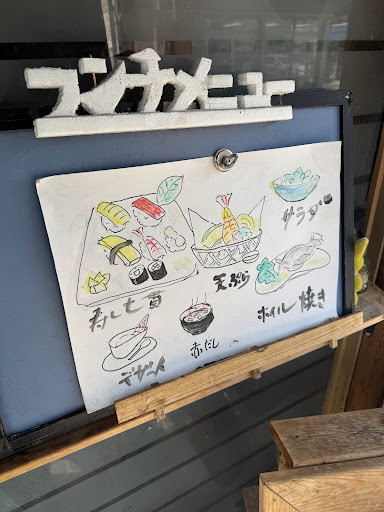 ランチメニュー
サラダ
寿し七貫
天ぷら
ホイル焼き
デザート
赤だし